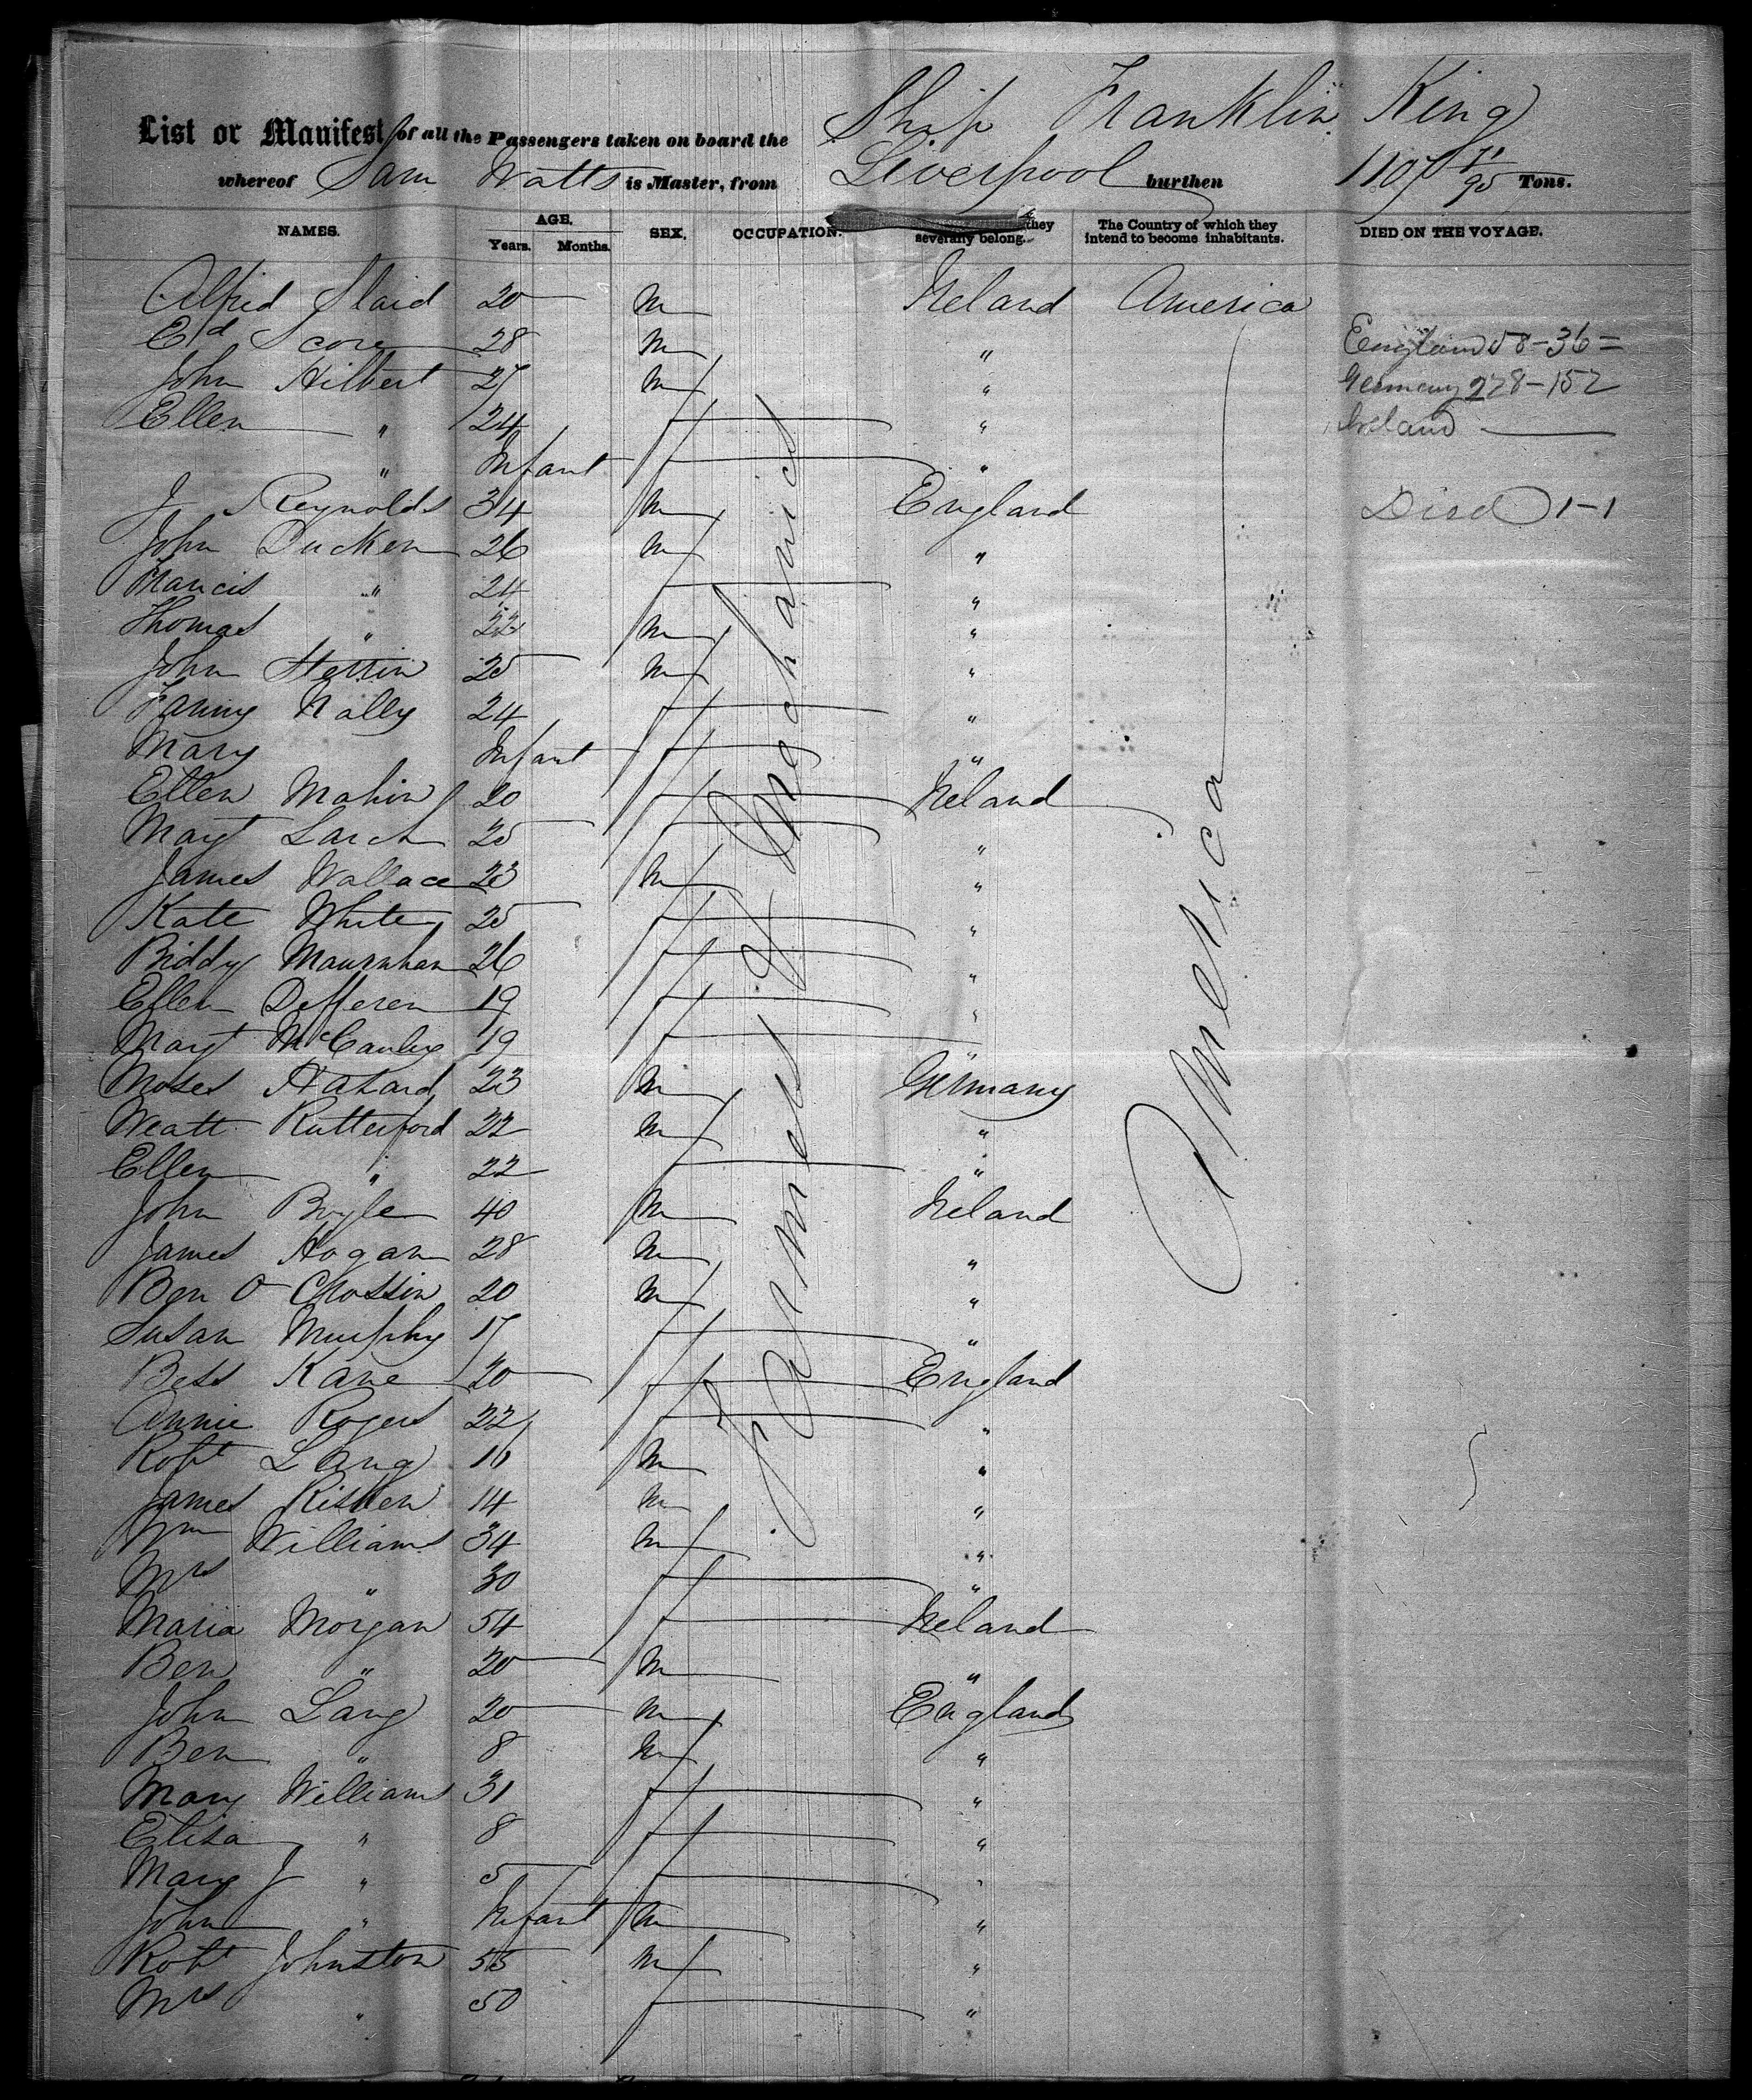 List or Manifest of all the Passengers taken on board the Ship Franklin King
whereof Sam Watts is Master, from Liverpool burthen 1107 71/95 Tons.
NAMES. AGE. Years. Months. SEX. OCCUPATION. they severally belong. The Country of which they intend to become inhabitants. DIED ON THE VOYAGE.
Alfred Slaid 20 m Ireland America
Ed Score 28 m " England 58-36=
John Hilbert 27 m " Germany 278-152
Ellen " 24 f " Ireland —
" Infant f "
J Reynolds 34 m England Died 1-1
John Ducken 26 m "
Francis " 24 f "
Thomas " 22 m "
John Sterrin 25 m "
Fanny Nally 24 f "
Mary Infant f "
Ellen Mahin 20 f Ireland
Margt Larch 25 f "
James Wallace 23 m "
Kate White 25 f "
Biddy 26 f "
Ellen Defferen 19 f "
Margt McCauley 19 f "
Moses 23 m Germany
Weatt Rutterford 22 m "
Ellen " 22 f "
John Boyle 40 m Ireland
James Hogan 28 m "
Ben O 20 m "
Susan Murphy 17 f "
Bess Kane 20 f England
Annie Rogers 22 f "
Robt Lang 16 m "
James 14 m "
Wm Williams 34 m "
Mrs " 30 f "
Maria Morgan 54 f Ireland
Ben " 20 m "
John Lang 20 m England
Ben " 8 m "
Mary Williams 31 f "
Elisa " 8 f "
Mary J " 5 f "
John " Infant m "
Robt Johnston 55 m "
Mrs " 50 f "
Farmers & Mechanics
America